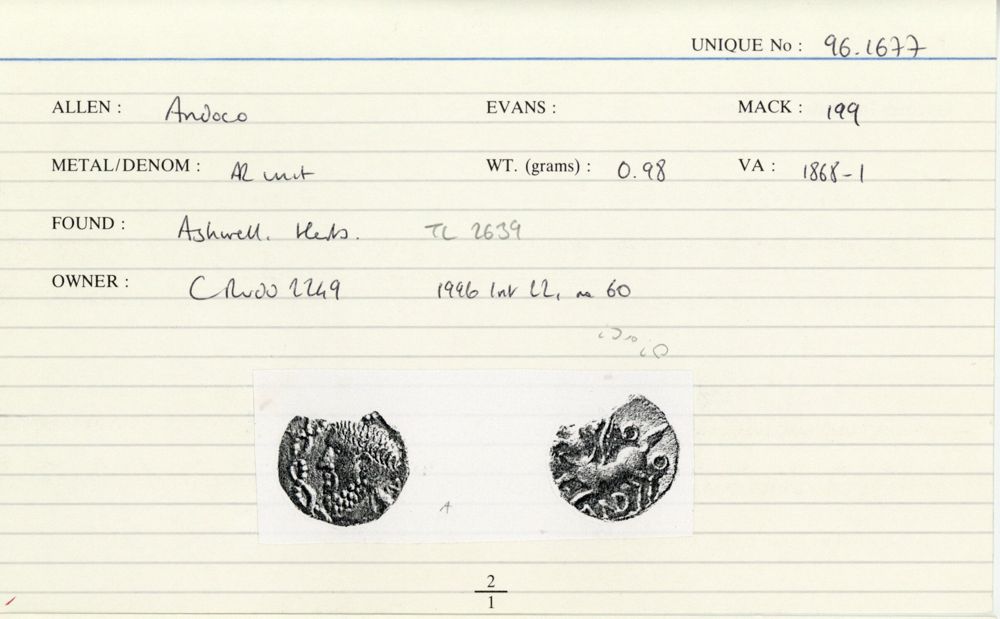 UNIQUE No : 96.1677
ALLEN : Andoco EVANS : MACK : 199
METAL/DENOM : AR unit WT. (grams) : 0.98 VA : 1868-1
FOUND : Ashwell. Herts. TL 2639
OWNER : 2249 1996 no 60
AND
2
1